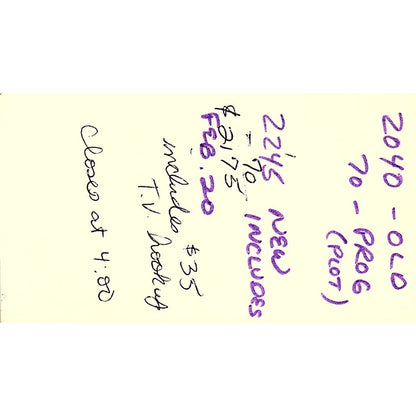 2040 - OLD
70 - PROG
(PLOT)
2245 NEW
INCLUDES
- 70
$2175
FEB. 20
includes $35
T.V. hookup
Closes at 4:00